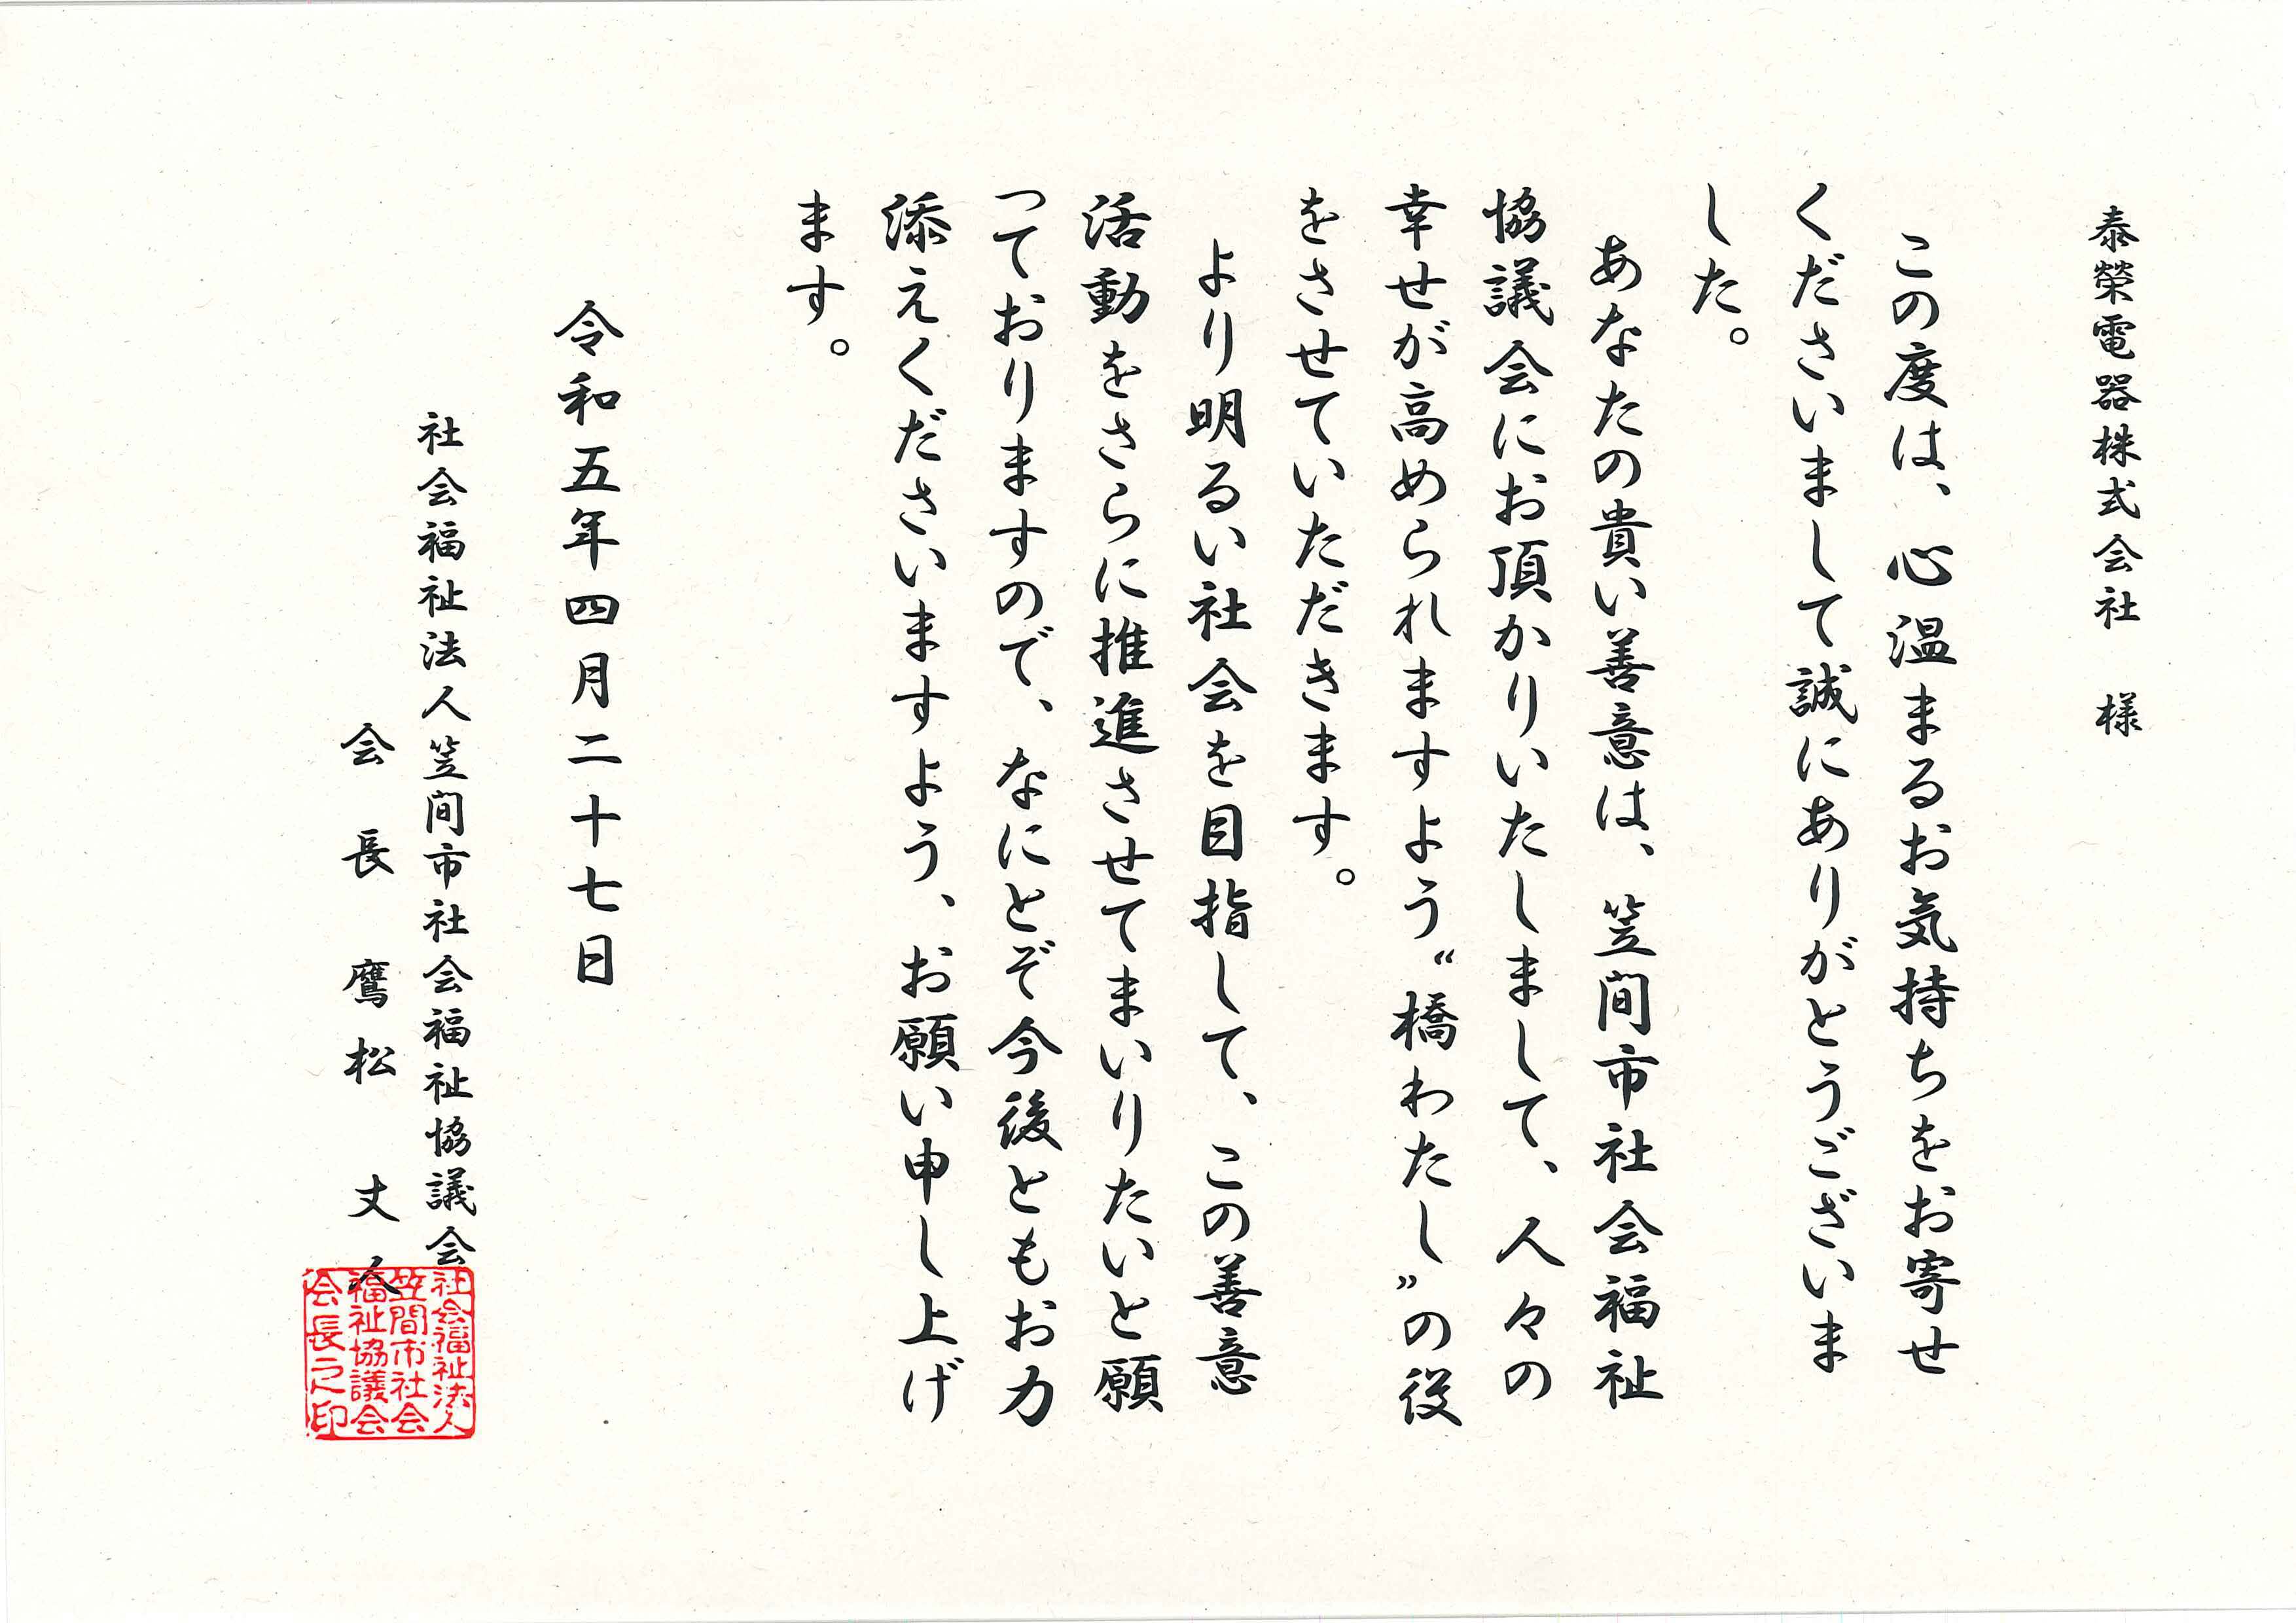 泰榮電器株式会社　様
この度は、心温まるお気持ちをお寄せ
くださいまして誠にありがとうございま
した。
あなたの貴い善意は、笠間市社会福祉
協議会にお頂かりいたしまして、人々の
幸せが高められますよう〝橋わたし〟の役
をさせていただきます。
より明るい社会を目指して、この善意
活動をさらに推進させてまいりたいと願
っておりますので、なにとぞ今後ともお力
添えくださいますよう、お願い申し上げ
ます。
令和五年四月二十七日
社会福祉法人笠間市社会福祉協議会
会長　鷹松　丈人
社会福祉法人
笠間市社会
福祉協議会
会長之印